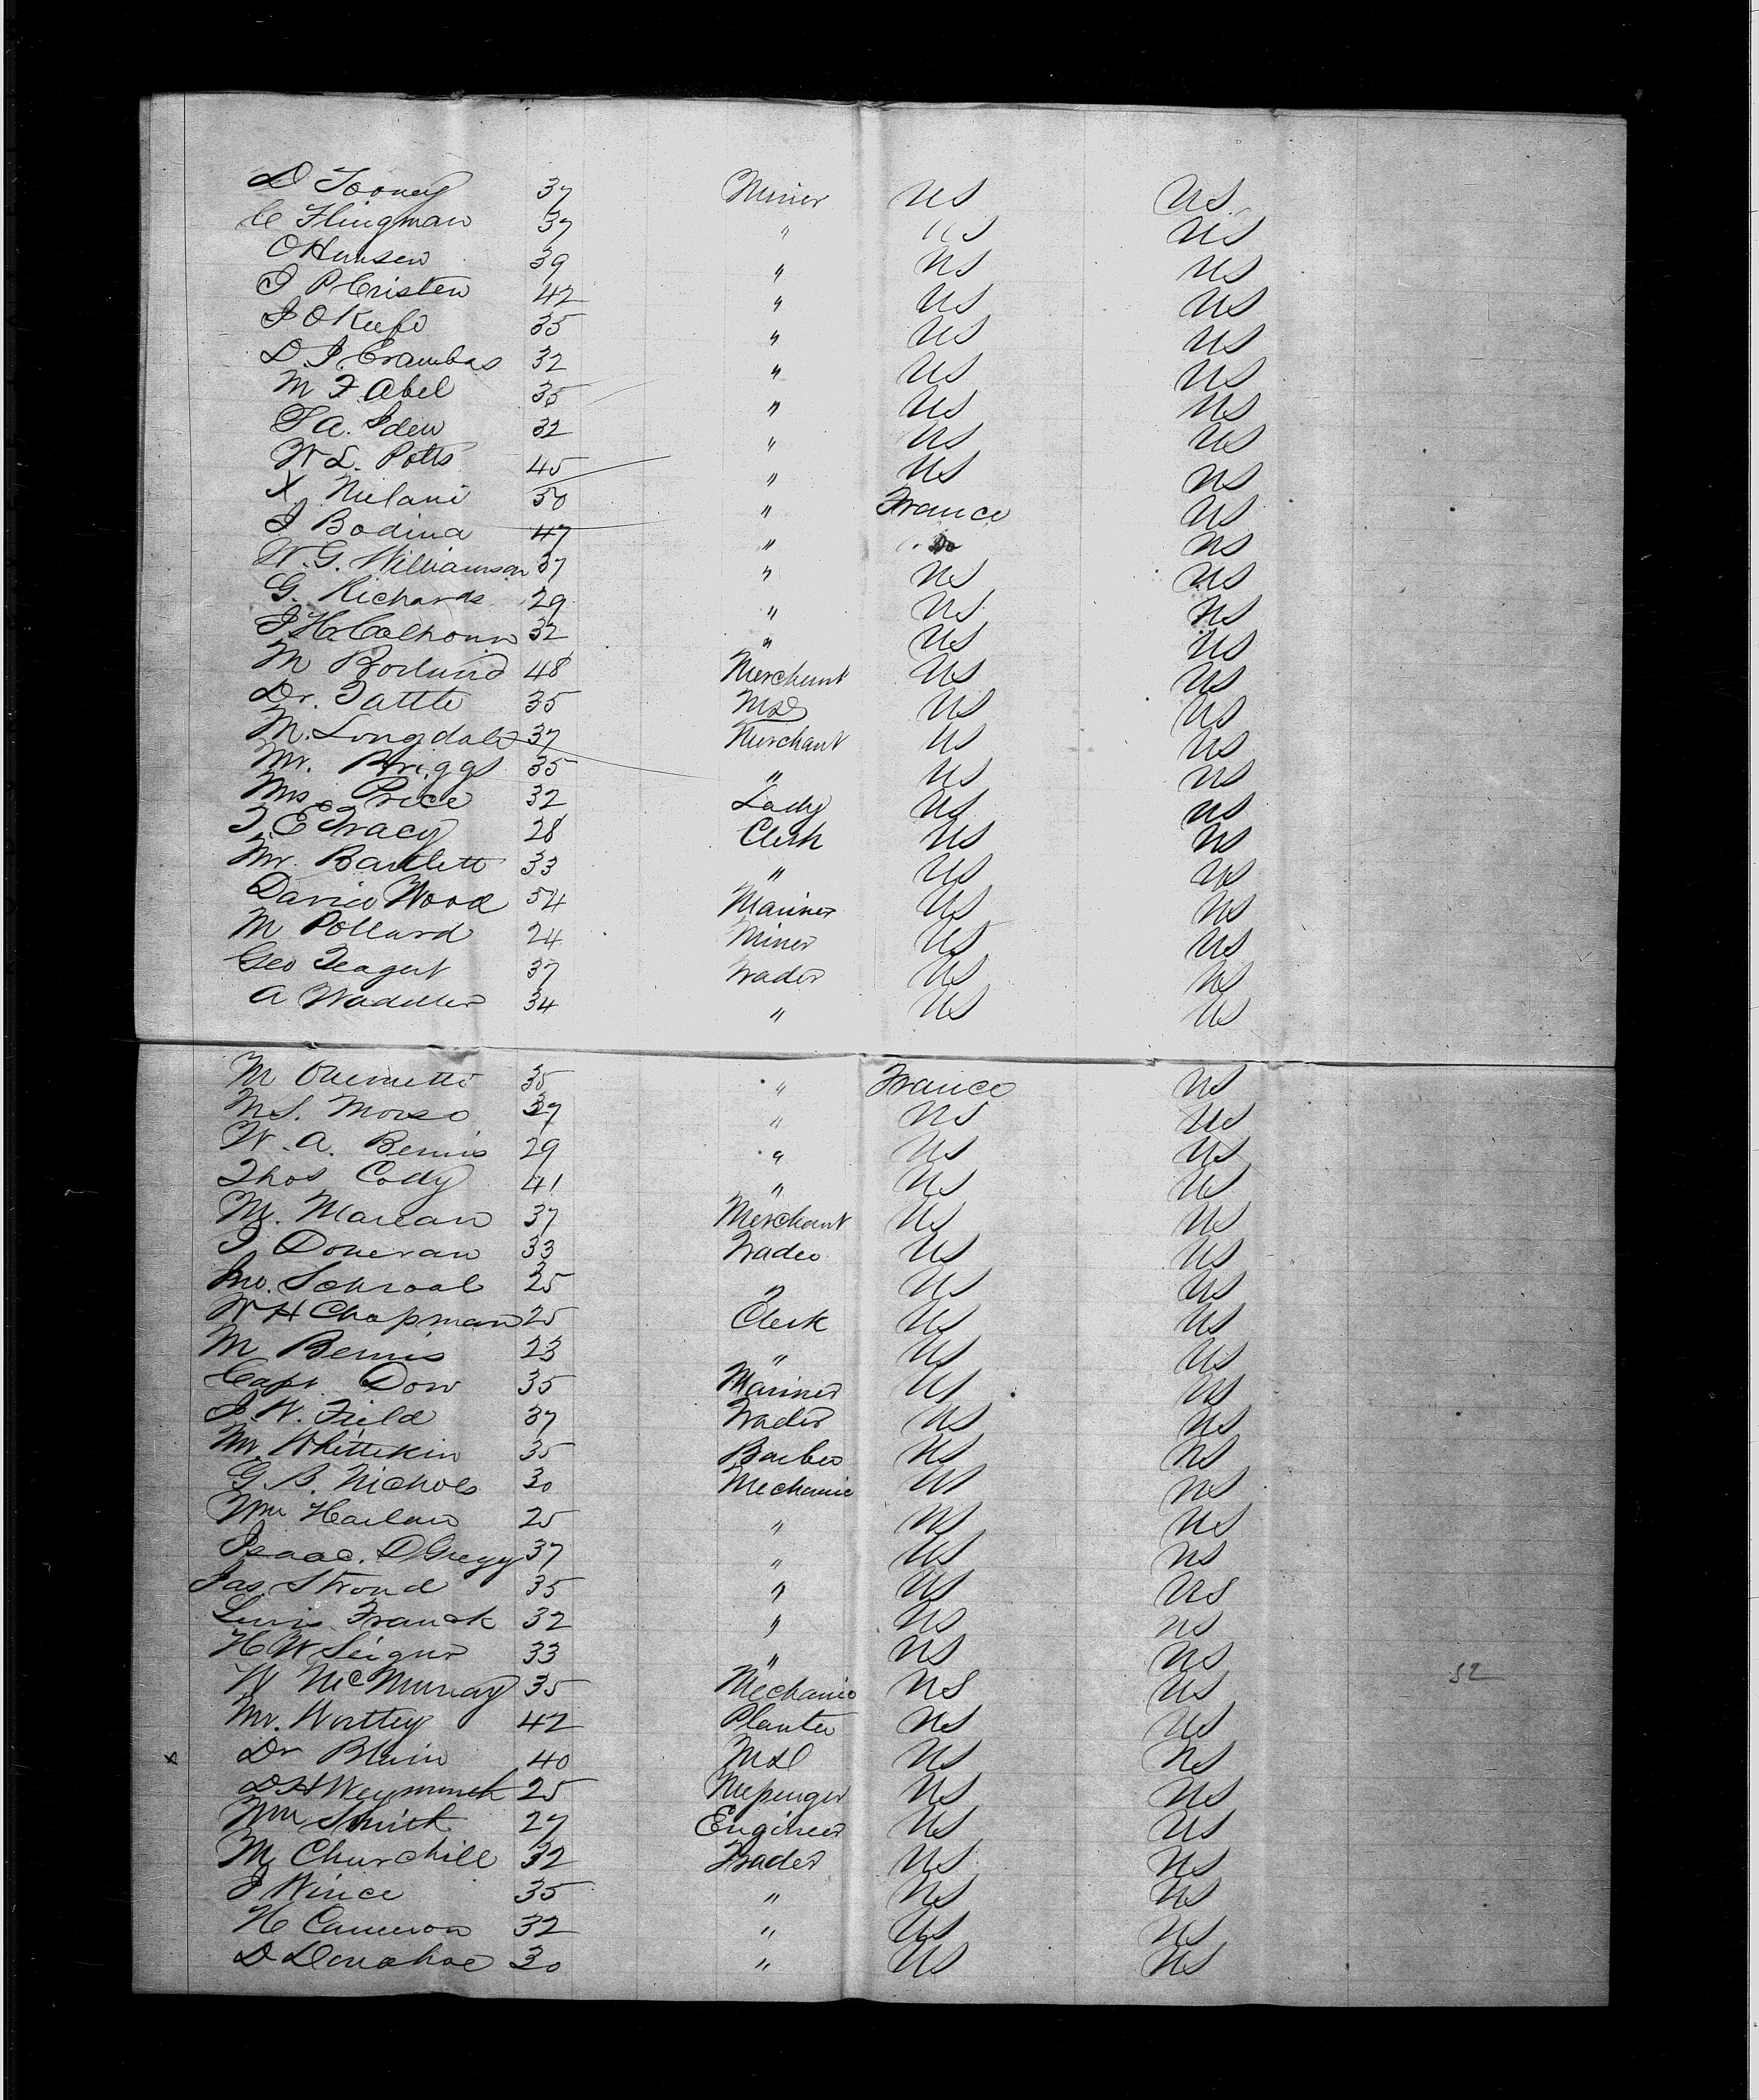 D Tooney 37 Miner US US
C Flingman 37 " US US
O Hansen 39 " US US
J P Cristen 42 " US US
J O Keefe 35 " US US
D. J. Crambas 32 " US US
M F Abel 35 " US US
T A. Iden 32 " US US
W L. Potts 45 " US US
X. Milani 50 " France US
J Bodina 47 " Do US
W. G. Williamson 37 " US US
G. Richards 29 " US US
J H Calhoun 32 " US US
M Borland 48 Merchant US US
Dr. Tattle 35 MD US US
M. Longdale 37 Merchant US US
Mr. Briggs 35 " US US
Mrs Price 32 Lady US US
T. E Tracy 28 Clerk US US
Mr. Bartlett 33 " US US
David Wood 54 Mariner US US
M Pollard 24 Miner US US
Geo Teagert 37 Trader US US
A Waddler 34 " US US
M Ouemette 35 " France US
M S. Morse 37 " US US
W. A. Bemis 29 " US US
Thos Cody 41 " US US
M. Marean 37 Merchant US US
J Doneran 33 Trader US US
Jno. Schroal 25 " US US
W H Chapman 25 Clerk US US
M Bemis 23 " US US
Capt Dow 35 Mariner US US
J. W. Field 37 Trader US US
Mr. Whittekin 35 Barber US US
G. B. Nichols 30 Mechanic US US
Wm Harlan 25 " US US
Isaac. D Gregg 37 " US US
Jas Stroud 35 " US US
Lewis Franck 32 " US US
H W Seigur 33 " US US
W McMurray 35 Mechanic US US
52
Mr. Worttey 42 Planter US US
x Dr Blain 40 MD US US
D H Weymouth 25 Messenger US US
Wm Smith 27 Engineer US US
M Churchill 32 Trader US US
J Wince 35 " US US
H Cameron 32 " US US
D Donahoe 30 " US US